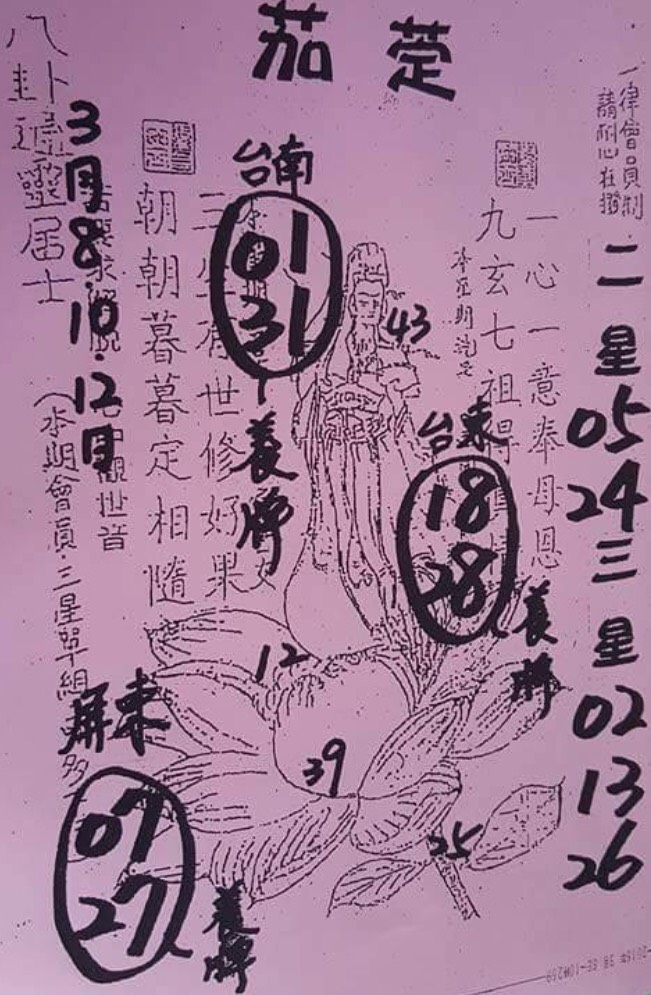 茄萣
一律會員制
請耐心在撥
二星
05
24
三星
02
13
26
一心一意奉母恩
九玄七祖得
43
台東
18
28
養牌
台南
01
31
養牌
世修好果
朝朝暮暮定相隨
3月8.10.12日
觀世音
八卦通靈居士
(本期會員.三星單組
12
39
25
屏東
07
27
養牌